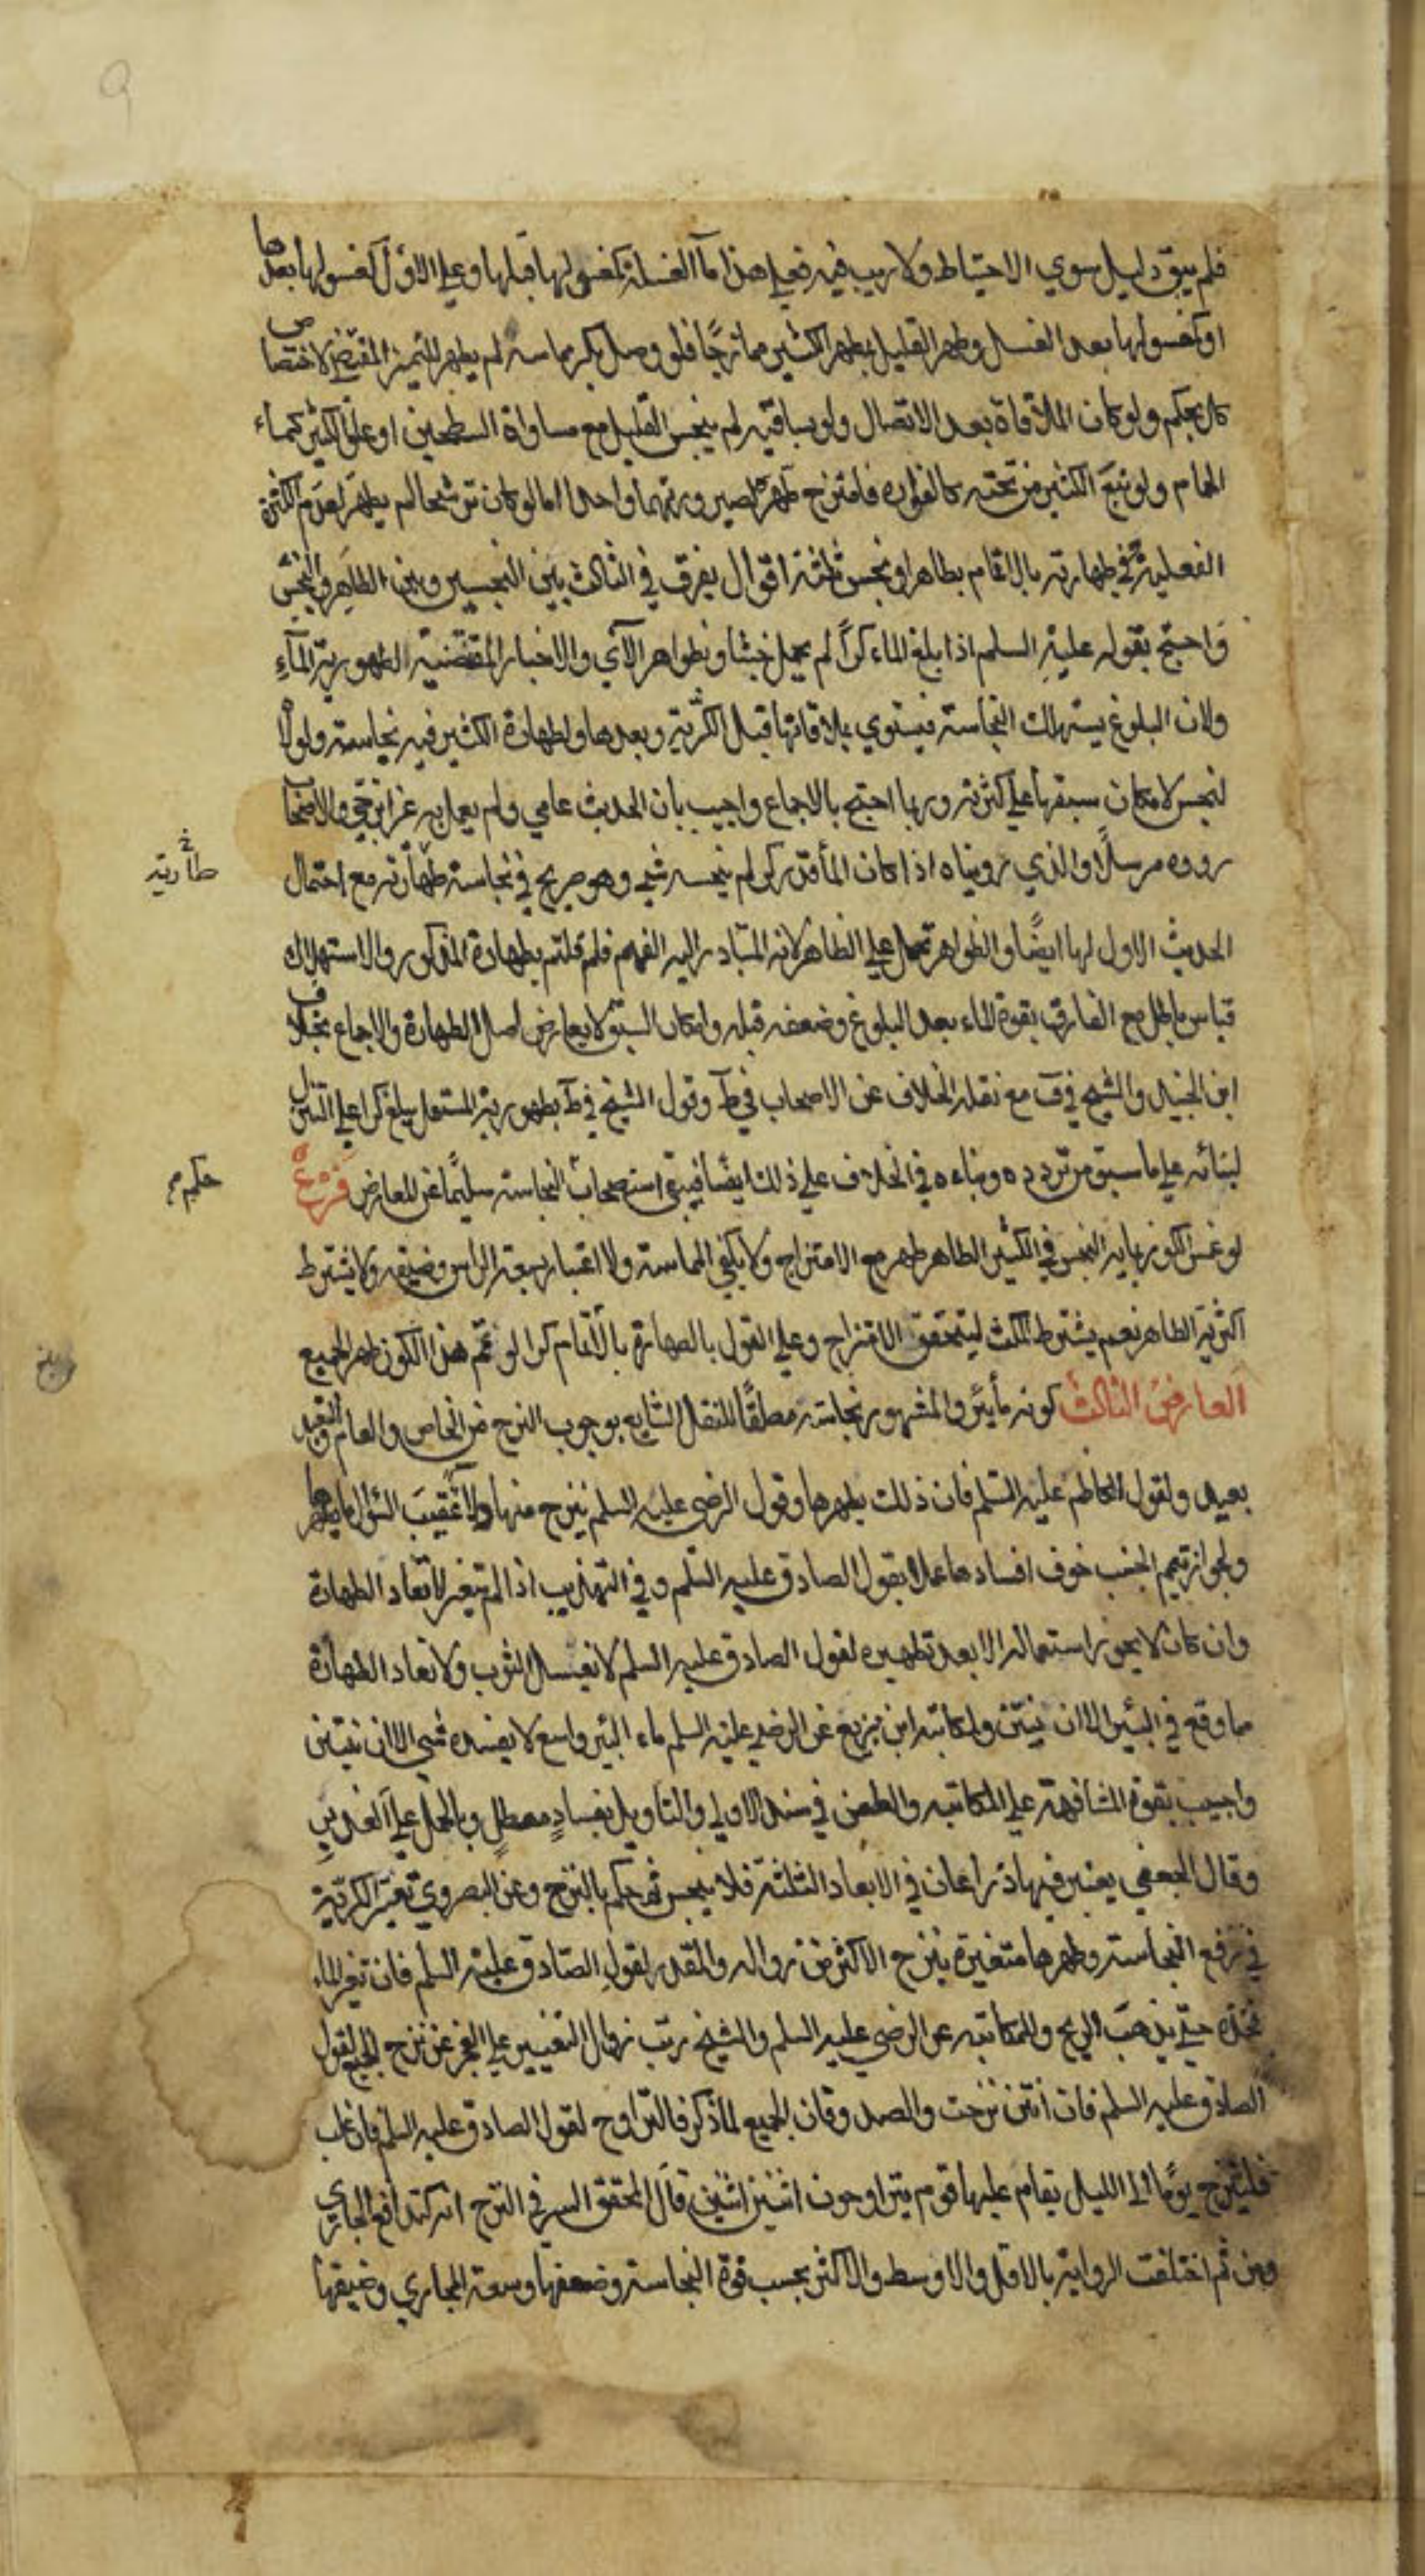 فلم يبق دليل سوى الاحتياط ولا ريب فيه فعلى هذا ماء الغسلة كمغسولها قبلها وعلى الاول كمغسولها بعدها
او كمغسولها بعد الغسل وطهر القليل بمطهر الكثير ممازجًا فلو وصل بكر مماسه لم يطهر للتميز المقتضي لاختصاص
كل بحكم ولو كان الملاقاة بعد الاتصال ولو بساقيه لم ينجس القليل مع مساواة السطحين او علو الكثير كماء
الحمام ولو نبع الكثير من تحته كالفواره فامتزج طهره لصيرورتهما واحدا اما لو كان ترشحا لم يطهر لعدم الكثرة
الفعلية وفي طهارته بالاتمام بطاهر او نجس ثلثة اقوال يفرق في الثالث بين النجسين وبين الطاهر والنجس
واحتج بقوله عليه السلم اذا بلغ الماء كراً لم يحمل خبثا وبظواهر الآي والاخبار المقتضية لطهورية الماء
ولان البلوغ يستهلك النجاسة فيستوي ملاقاتها قبل الكرية وبعدها ولطهارة الكثير فيه نجاسة ولولا
لنجس لامكان سبقها على كثرته وربما احتج بالاجماع واجيب بان الحديث عامي ولم يعمل به غير ابن حي والاصحاب
رووه مرسلًا والذي رويناه اذا كان الماء قدر كر لم ينجسه شيء وهو صريح في نجاسة طهارته مع احتمال
طارية
الحديث الاول لها ايضًا والظواهر تحمل على الظاهر لانه المتبادر اليه الفهم فلم قلتم بطهارة المذكور والاستهلاك
قياس باطل مع الفارق بقوة الماء بعد البلوغ وضعفه قبله وامكان السبق لا يعارض اصل الطهارة والاجماع بخلاف
ابن الجنيد والشيخ في ف مع نقله الخلاف عن الاصحاب في ط وقول الشيخ في ط بطهورية المستعمل يبلغ كرا على التنزل
لبنائه على ما سبق من تردده وبناءه في الخلاف على ذلك ايضًا فيبقى استصحاب النجاسة سليمًا عن المعارض فروع
حكم
لو غمس الكوز بمايه النجس في الكثير الطاهر طهر مع الامتزاج ولا يكفي المماسة ولا اعتبار بسعة الراس وضيقه ولا يشترط
اكثرية الطاهر نعم يشترط المكث ليتحقق الامتزاج وعلى القول بالطهارة بالاتمام كرا لو تمم هذا الكوز طهر الجميع
العارض الثالث كونه ماء بئر والمشهور نجاسته مطلقًا للنقل الشايع بوجوب النزح من الخاص والعام والتعبد
بعيد ولقول الكاظم عليه السلم فان ذلك يطهرها وقول الرضى عليه السلم ينزح منها دلاء عقيب السؤال ما يطهرها
ولجواز تيمم الجنب خوف افسادها عملا بقول الصادق عليه السلم وفي التهذيب اذا لم يتغير لا تعاد الطهارة
وان كان لا يجوز استعماله الا بعد تطهيره لقول الصادق عليه السلم لا يغسل الثوب ولا تعاد الطهارة
مما وقع في البئر الا ان ينتن ولمكاتبة ابن بزيع عن الرضي عليه السلم ماء البئر واسع لا يفسده شي الا ان ينتن
واجيب بقوة المشافهة على المكاتبه والطعن في سند الاولى والتاويل بفسادٍ معطل وبالحمل على الغدير
وقال الجعفي يعتبر فيها ذراعان في الابعاد الثلثة فلا ينجس ثم حكم بالنزح وعن البصروي تعتبر الكرية
في رفع النجاسة وطهرها متغيرة بنزح الاكثر من زواله والمقدر لقول الصادق عليه السلم فان تغير الماء
فخذه حتى يذهب الريح والمكاتبه عن الرضي عليه السلم والشيخ رتب زوال التغيير على العجز عن نزح الجميع لقول
الصادق عليه السلم فان انتن نزحت والصدوقان الجميع لما ذكر فالتراوح لقول الصادق عليه السلم فان غلب
فلينزح يومًا الى الليل يقام عليها قوم يتراوحون اثنين اثنين قال المحقق السر في النزح انه كتدافع الجاري
ومن ثم اختلفت الرواية بالاقل والاوسط والاكثر بحسب قوة النجاسة وضعفها وسعة المجاري وضيقها